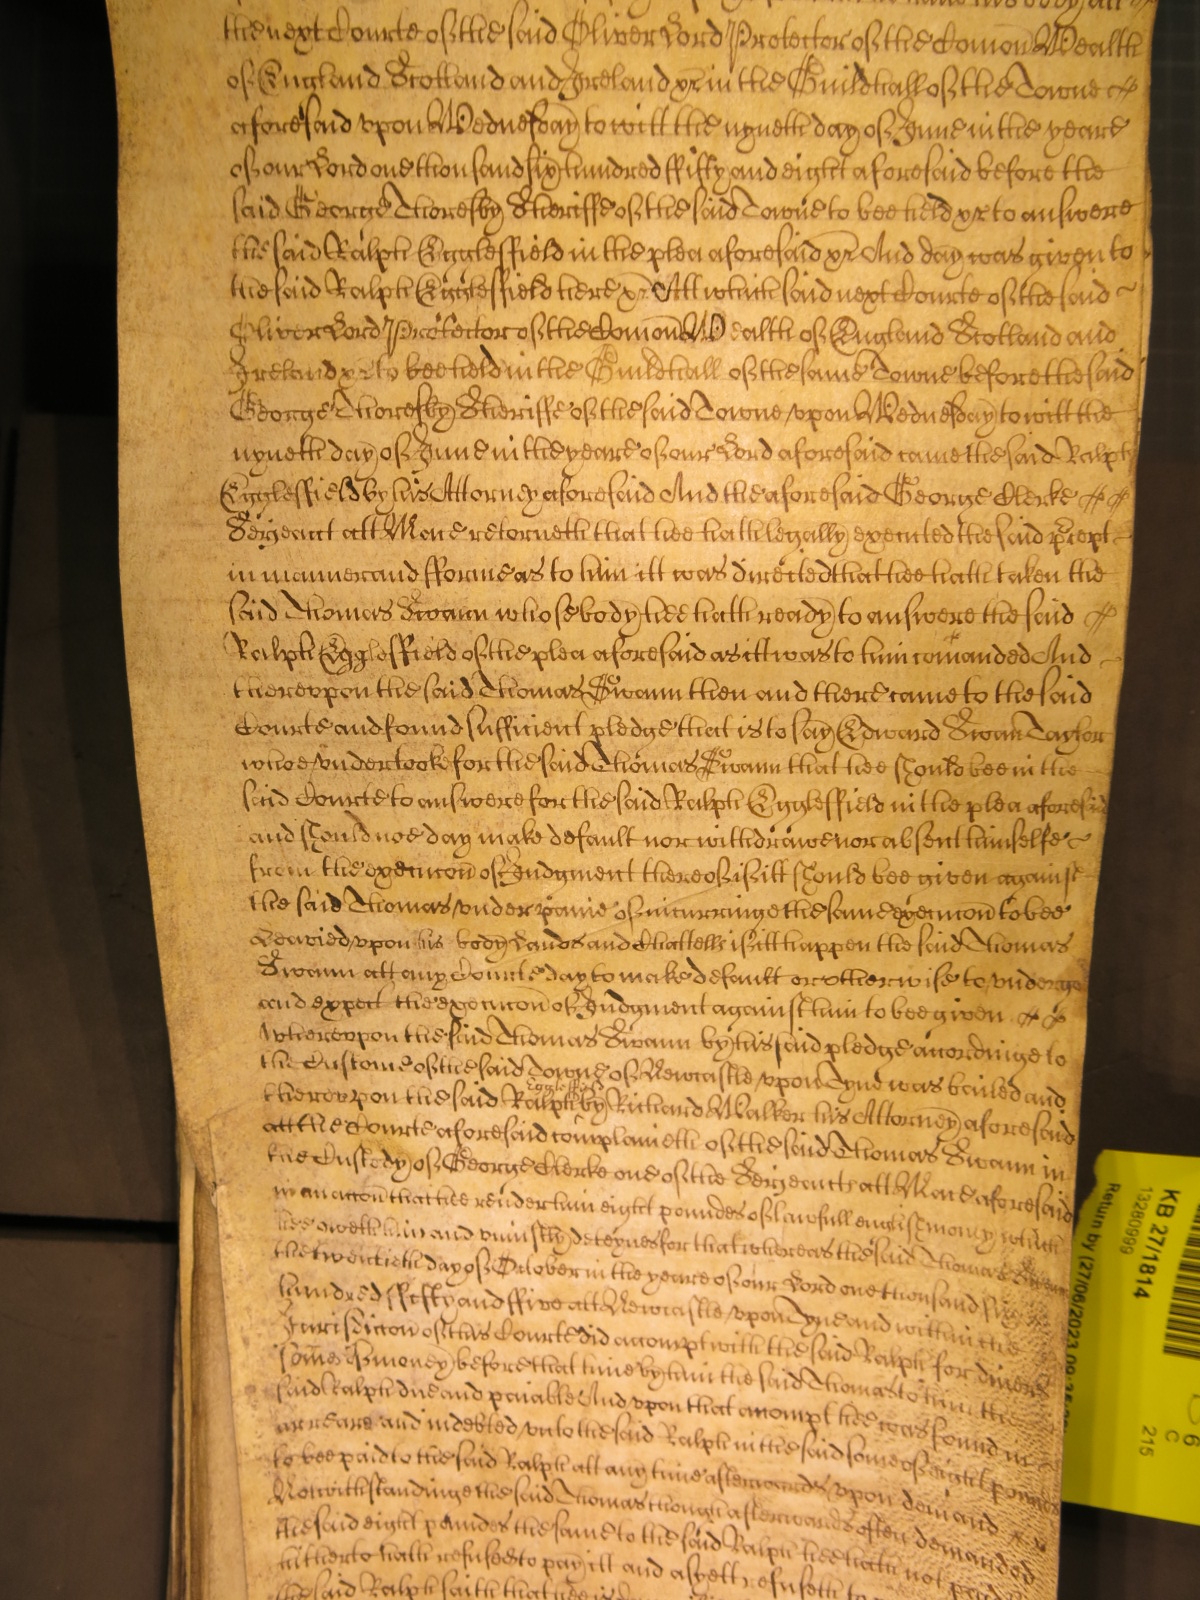 the next Courte of the said Oliver Lord Protector of the Comon Wealth
of England Scotland and Ireland &c in the Guildhall of the Towne
aforesaid vpon Wednesday to witt the nyneth day of June in the yeare
of our Lord one thousand six hundred ffifty and eight aforesaid before the
said George Thoresby Sheriffe of the said Towne to bee held &c to answere
the said Ralph Egglesffield in the plea aforesaid &c And day was given to
the said Ralph Egglesffield here &c Att which said next Courte of the said
Oliver Lord Protector of the Comon Wealth of England Scotland and
Ireland &c to bee held in the Guildhall of the same Towne before the said
George Thoresby Sheriffe of the said Towne vpon Wednesday to witt the
nyneth day of June in the yeare of our Lord aforesaid came the said Ralph
Egglesffield by his Attorney aforesaid And the aforesaid George Clerke
Serjeant att Mace retorneth that hee hath legally executed the said precept
in manner and fforme as to him itt was directed that hee hath taken the
said Thomas Swann whose body hee hath ready to answere the said
Ralph Egglesffield of the plea aforesaid as itt was to him comanded And
therevpon the said Thomas Swann then and there came to the said
Courte and found sufficient pledge that is to say Edward Swan Taylor
whoe vndertooke for the said Thomas Swann that hee should bee in the
said Courte to answere for the said Ralph Egglesffield in the plea aforesaid
and should noe day make default nor withdrawe nor absent himselfe
from the execucon of Judgment thereof if itt should bee given against
the said Thomas vnder paine of incurringe the same execucon to bee
Leavied vpon his body Lands and Chattells if itt happen the said Thomas
Swann att any Courte day to make default or otherwise to vndergo
and expect the execucon of Judgment against him to bee given
Wherevpon the said Thomas Swann by his said pledge accordinge to
the Custome of the said Towne of Newcastle vpon Tyne was bailed and
therevpon the said Ralph Egglesffield by Richard Walker his Attorney aforesaid
att the Courte aforesaid complaineth of the said Thomas Swann in
the Custody of George Clerke one of the Serjeants att Mace aforesaid
in an accon that hee render him eight poundes of lawfull english money which
hee oweth him and vniustly deteynes for that whereas the said Thomas Swann
the twentieth day of October in the yeare of our Lord one thousand six
hundred ffifty and ffive att Newcastle vpon Tyne and within the
Jurisdicon of this Courte did accompt with the said Ralph for divers
somes of money before that time by him the said Thomas to him the
said Ralph due and paiable And vpon that accompt hee was found in
arreare and indebted vnto the said Ralph in the said some of eight pounds
to bee paid to the said Ralph att any time afterwards vpon demand
Notwithstandinge the said Thomas though afterwards often demanded
the said eight poundes the same to the said Ralph hee hath not paid
hitherto hath refused to pay itt and as yett refuseth to
the said Ralph saith that hee is
KB 27/1814
13280999
Return by (27/06/2023
C
215